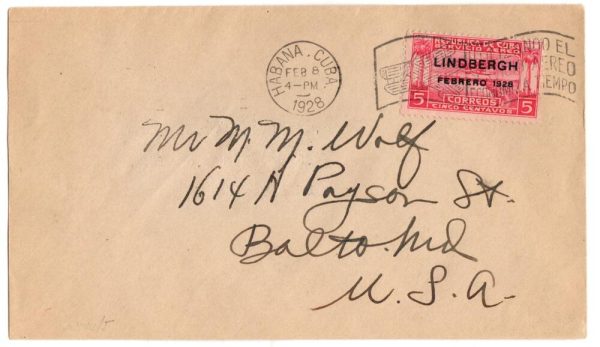 HABANA. CUBA.
FEB 8
4-PM
1928
REPUBLICA DE CUBA
SERVICIO AEREO
LINDBERGH
FEBRERO 1928
5 CORREOS 5
CINCO CENTAVOS
NDO EL
EREO
EMPO
Mr M. M. Wolf
1614 N Payson St.
Balto. Md
U. S. A.